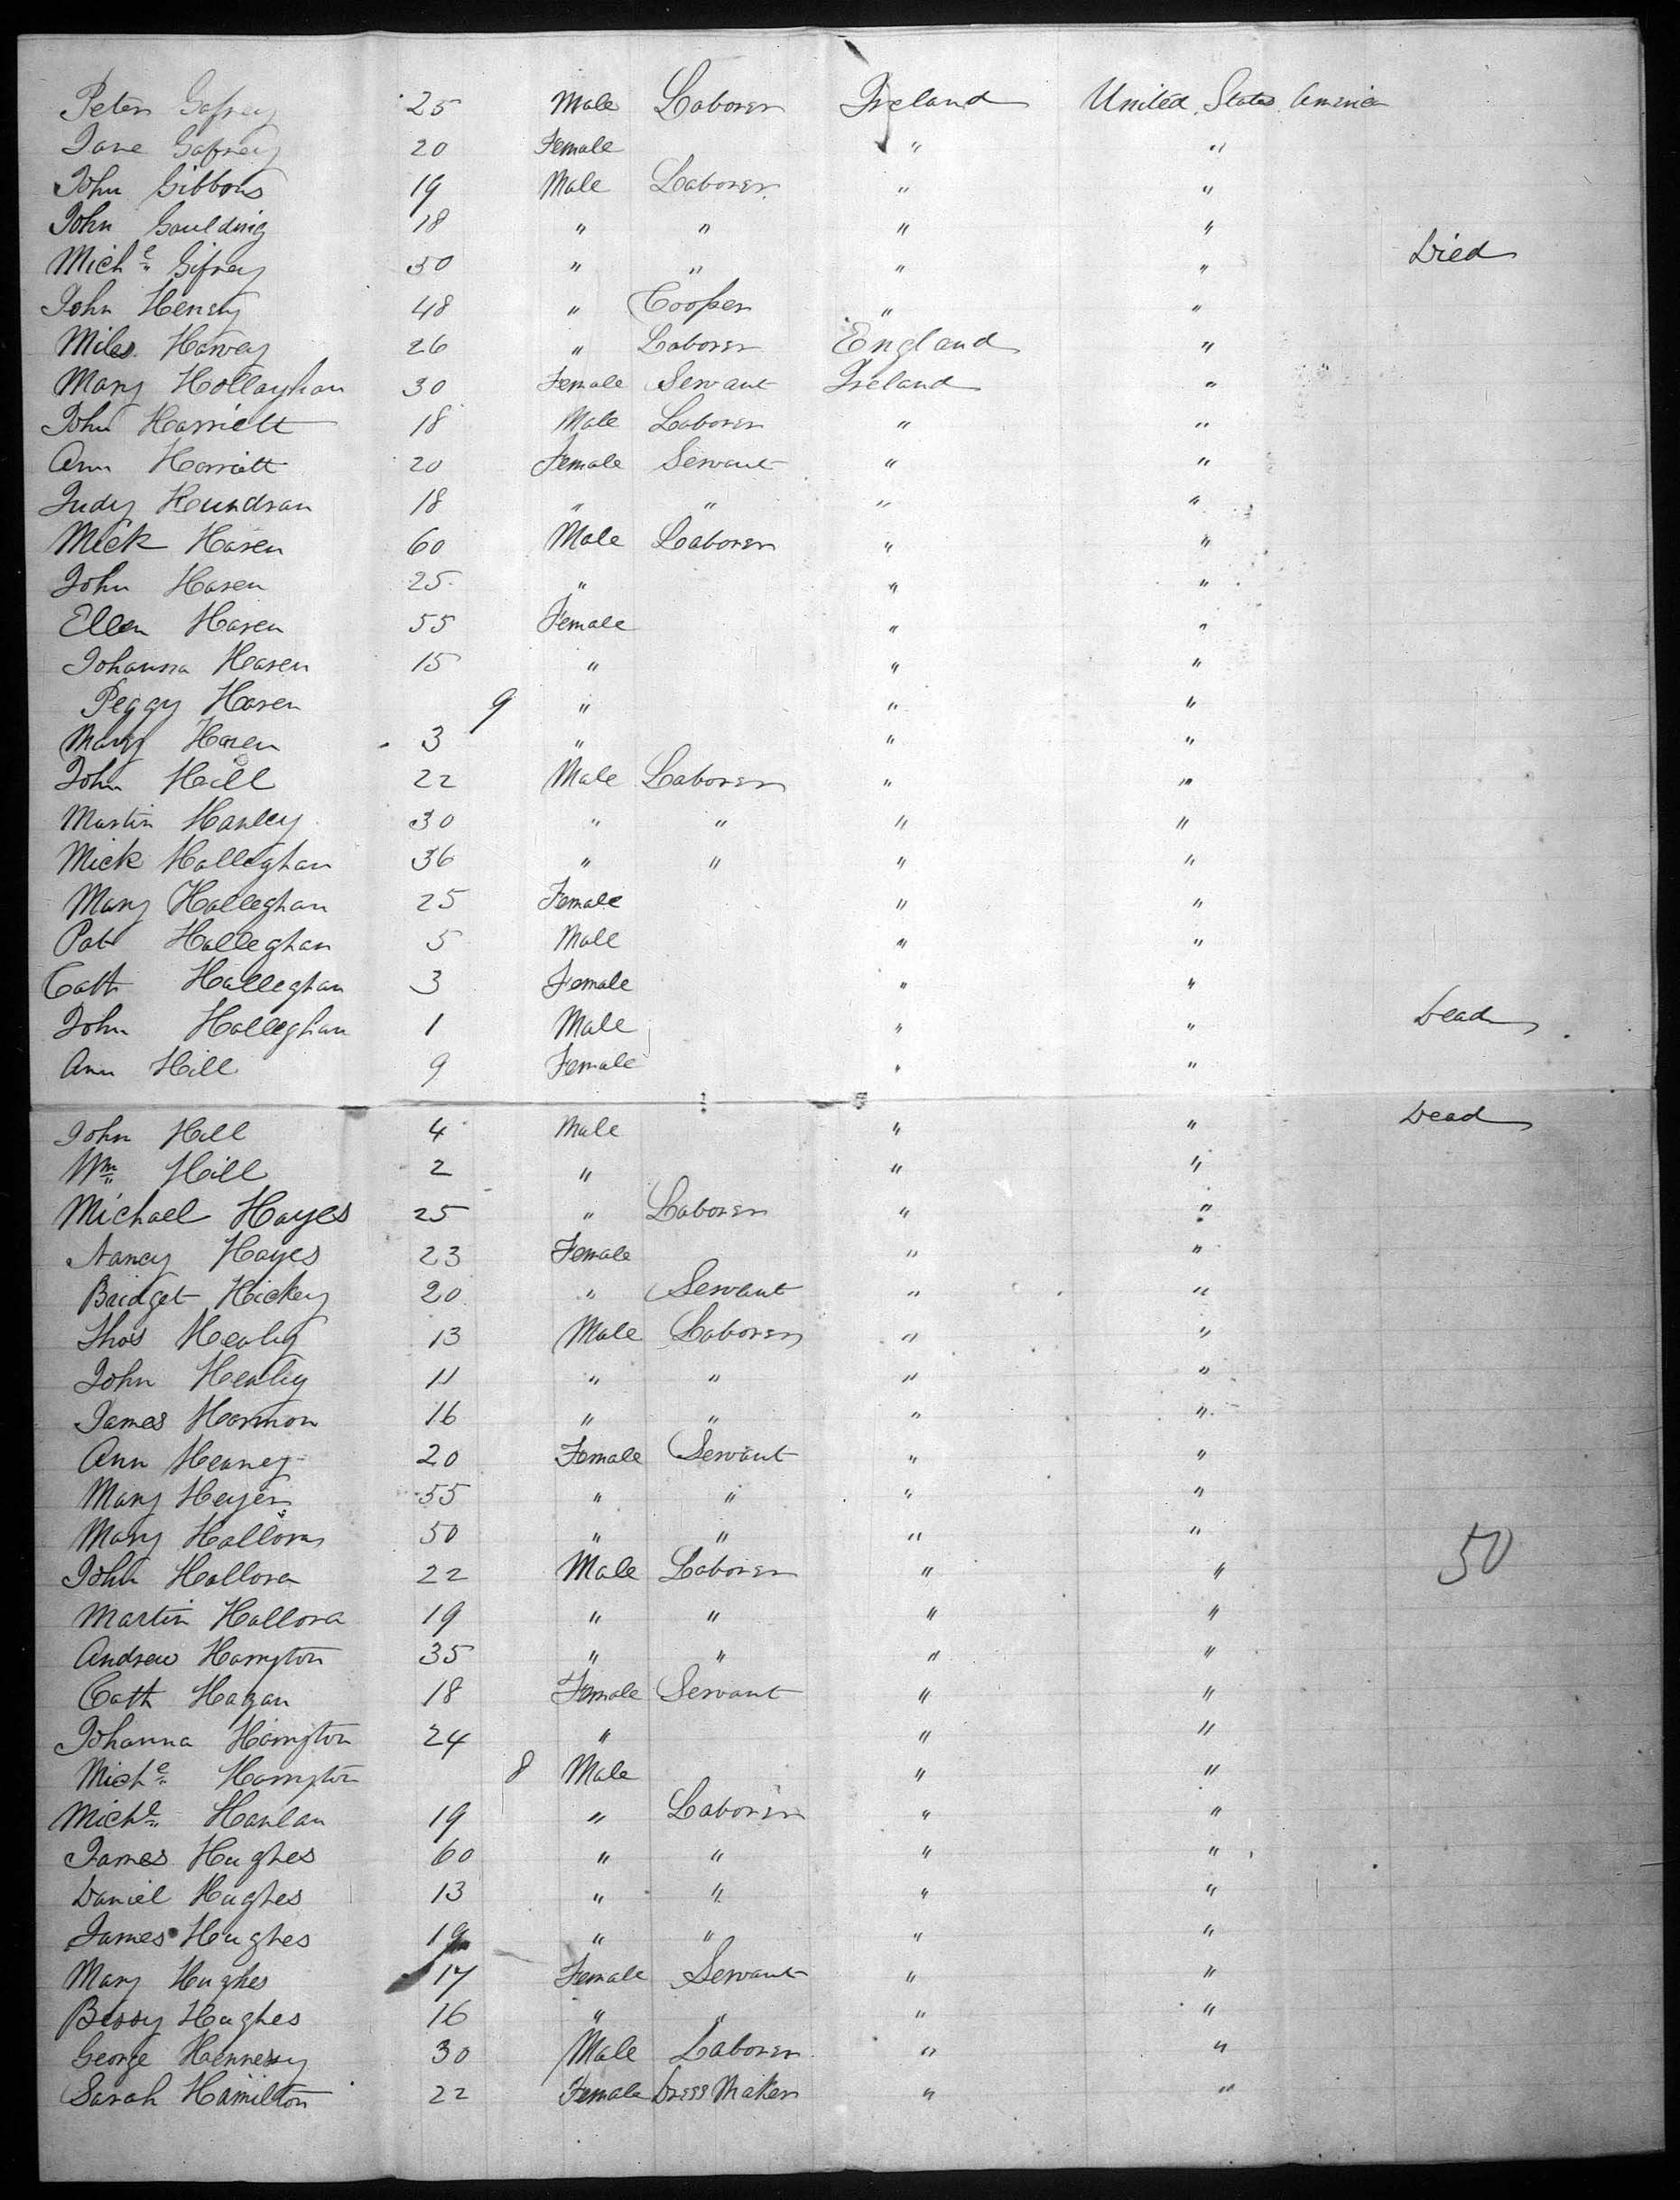 Peter Gafney 25 Male Laborer Ireland United States America
Jane Gafney 20 Female " "
John Gibbons 19 Male Laborer " "
John Goulding 18 " " " "
Michl Gifney 30 " " " " Died
John Henery 48 " Cooper " "
Miles Harvey 26 " Laborer England "
Mary Hollaghan 30 Female Servant Ireland "
John Harriett 18 Male Laborer " "
Ann Harriott 20 Female Servant " "
Judy Hundran 18 " " " "
Mick Haren 60 Male Laborer " "
John Haren 25 " " "
Ellen Haren 55 Female " "
Johanna Haren 15 " " "
Peggy Haren 9 " " "
Mary Haren 3 " " "
John Hill 22 Male Laborer " "
Martin Hanley 30 " " " "
Mick Halleghan 36 " " " "
Mary Halleghan 25 Female " "
Pat Halleghan 5 Male " "
Cath Halleghan 3 Female " "
John Halleghan 1 Male " " Dead
Ann Hill 9 Female " "
John Hill 4 Male " " Dead
Wm Hill 2 " " "
Michael Hayes 25 " Laborer " "
Nancy Hayes 23 Female " "
Bridget Hickey 20 " Servant " "
Thos Healey 13 Male Laborer " "
John Healey 11 " " " "
James Harmon 16 " " " "
Ann Heaney 20 Female Servant " "
Mary Heyer 55 " " " "
Mary Hallora 50 " " " "
John Hallora 22 Male Laborer " " 50
Martin Hallora 19 " " " "
Andrew Harrngton 35 " " " "
Cath Hagan 18 Female Servant " "
Johanna Harrngton 24 " " "
Michl Harrngton 8 Male " "
Michl Hanlan 19 " Laborer " "
James Hughes 60 " " " "
Daniel Hughes 13 " " " "
James Hughes 19 " " " "
Mary Hughes 17 Female Servant " "
Bessy Hughes 16 " " " "
George Hennessy 30 Male Laborer " "
Sarah Hamilton 22 Female Dress Maker " "